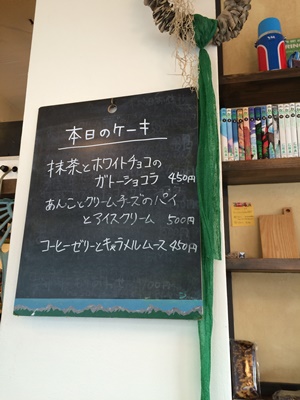 本日のケーキ
抹茶とホワイトチョコの
ガトーショコラ 450円
あんことクリームチーズのパイ
とアイスクリーム 500円
コーヒーゼリーとキャラメルムース 450円